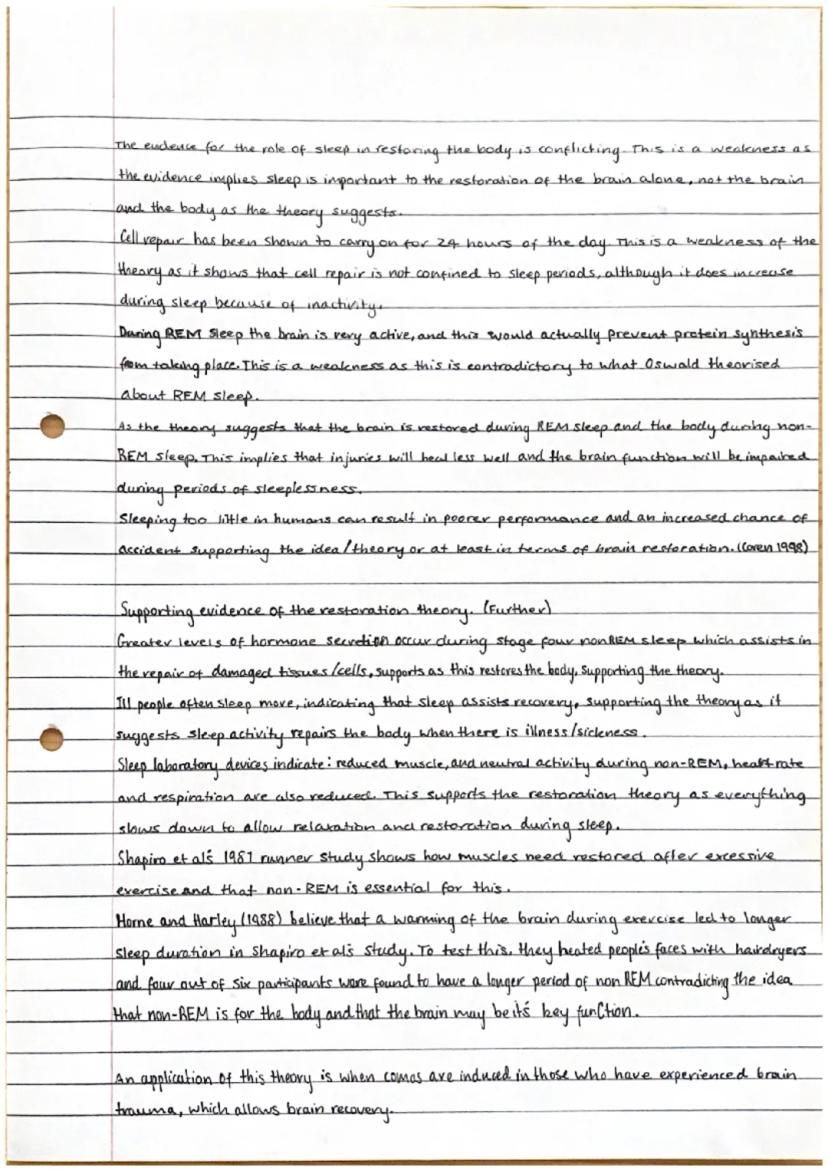 The evidence for the role of sleep in restoring the body is conflicting. This is a weakness as
the evidence implies sleep is important to the restoration of the brain alone, not the brain
and the body as the theory suggests.
Cell repair has been shown to carry on for 24 hours of the day. This is a weakness of the
theory as it shows that cell repair is not confined to sleep periods, although it does increase
during sleep because of inactivity.
During REM sleep the brain is very active, and this would actually prevent protein synthesis
from taking place. This is a weakness as this is contradictory to what Oswald theorised
about REM sleep.
As the theory suggests that the brain is restored during REM sleep and the body during non-
REM sleep. This implies that injuries will heal less well and the brain function will be impaired
during periods of sleeplessness.
Sleeping too little in humans can result in poorer performance and an increased chance of
accident supporting the idea/theory or at least in terms of brain restoration. (Coren 1998)
Supporting evidence of the restoration theory. (Further)
Greater levels of hormone secretion occur during stage four nonREM sleep which assists in
the repair of damaged tissues/cells, supports as this restores the body, supporting the theory.
Ill people often sleep more, indicating that sleep assists recovery, supporting the theory as it
suggests sleep activity repairs the body when there is illness/sickness.
Sleep laboratory devices indicate: reduced muscle, and neutral activity during non-REM, heart rate
and respiration are also reduced. This supports the restoration theory as everything
slows down to allow relaxation and restoration during sleep.
Shapiro et al's 1981 runner study shows how muscles need restored after excessive
exercise and that non-REM is essential for this.
Horne and Harley (1988) believe that a warming of the brain during exercise led to longer
sleep duration in Shapiro et al's study. To test this, they heated people's faces with hairdryers
and four out of six participants were found to have a longer period of non REM contradicting the idea
that non-REM is for the body and that the brain may be it's key function.
An application of this theory is when comas are induced in those who have experienced brain
trauma, which allows brain recovery.